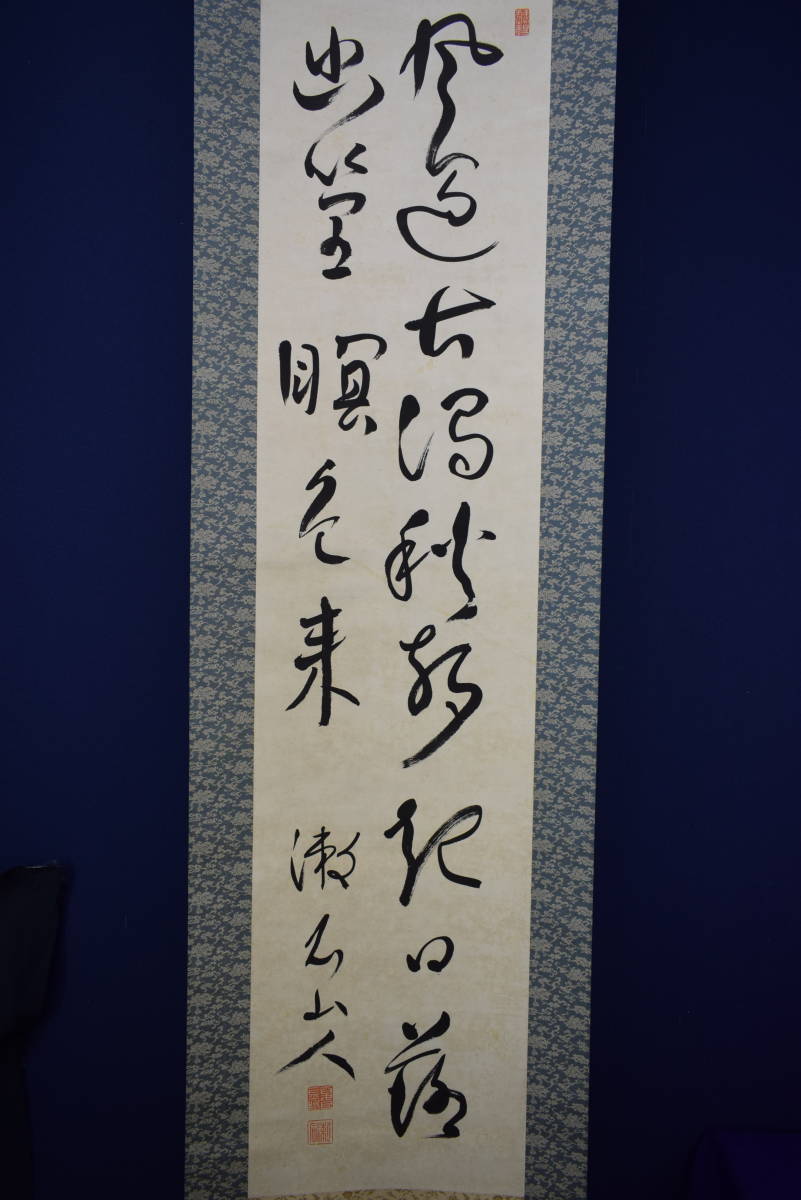 風過古澗秋声起日落
幽篁瞑色来
漱石山人